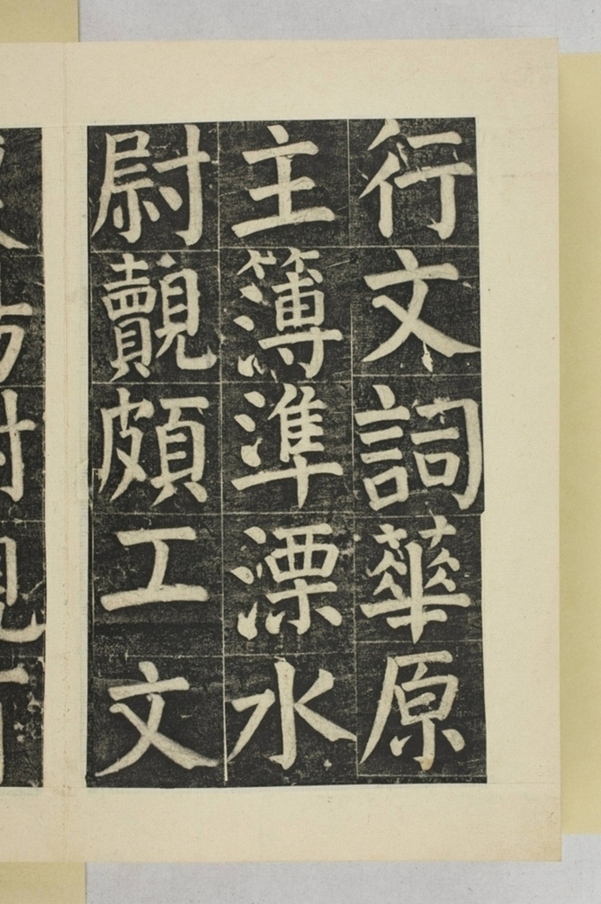 行文詞華原
主簿準溧水
尉覿頗工文